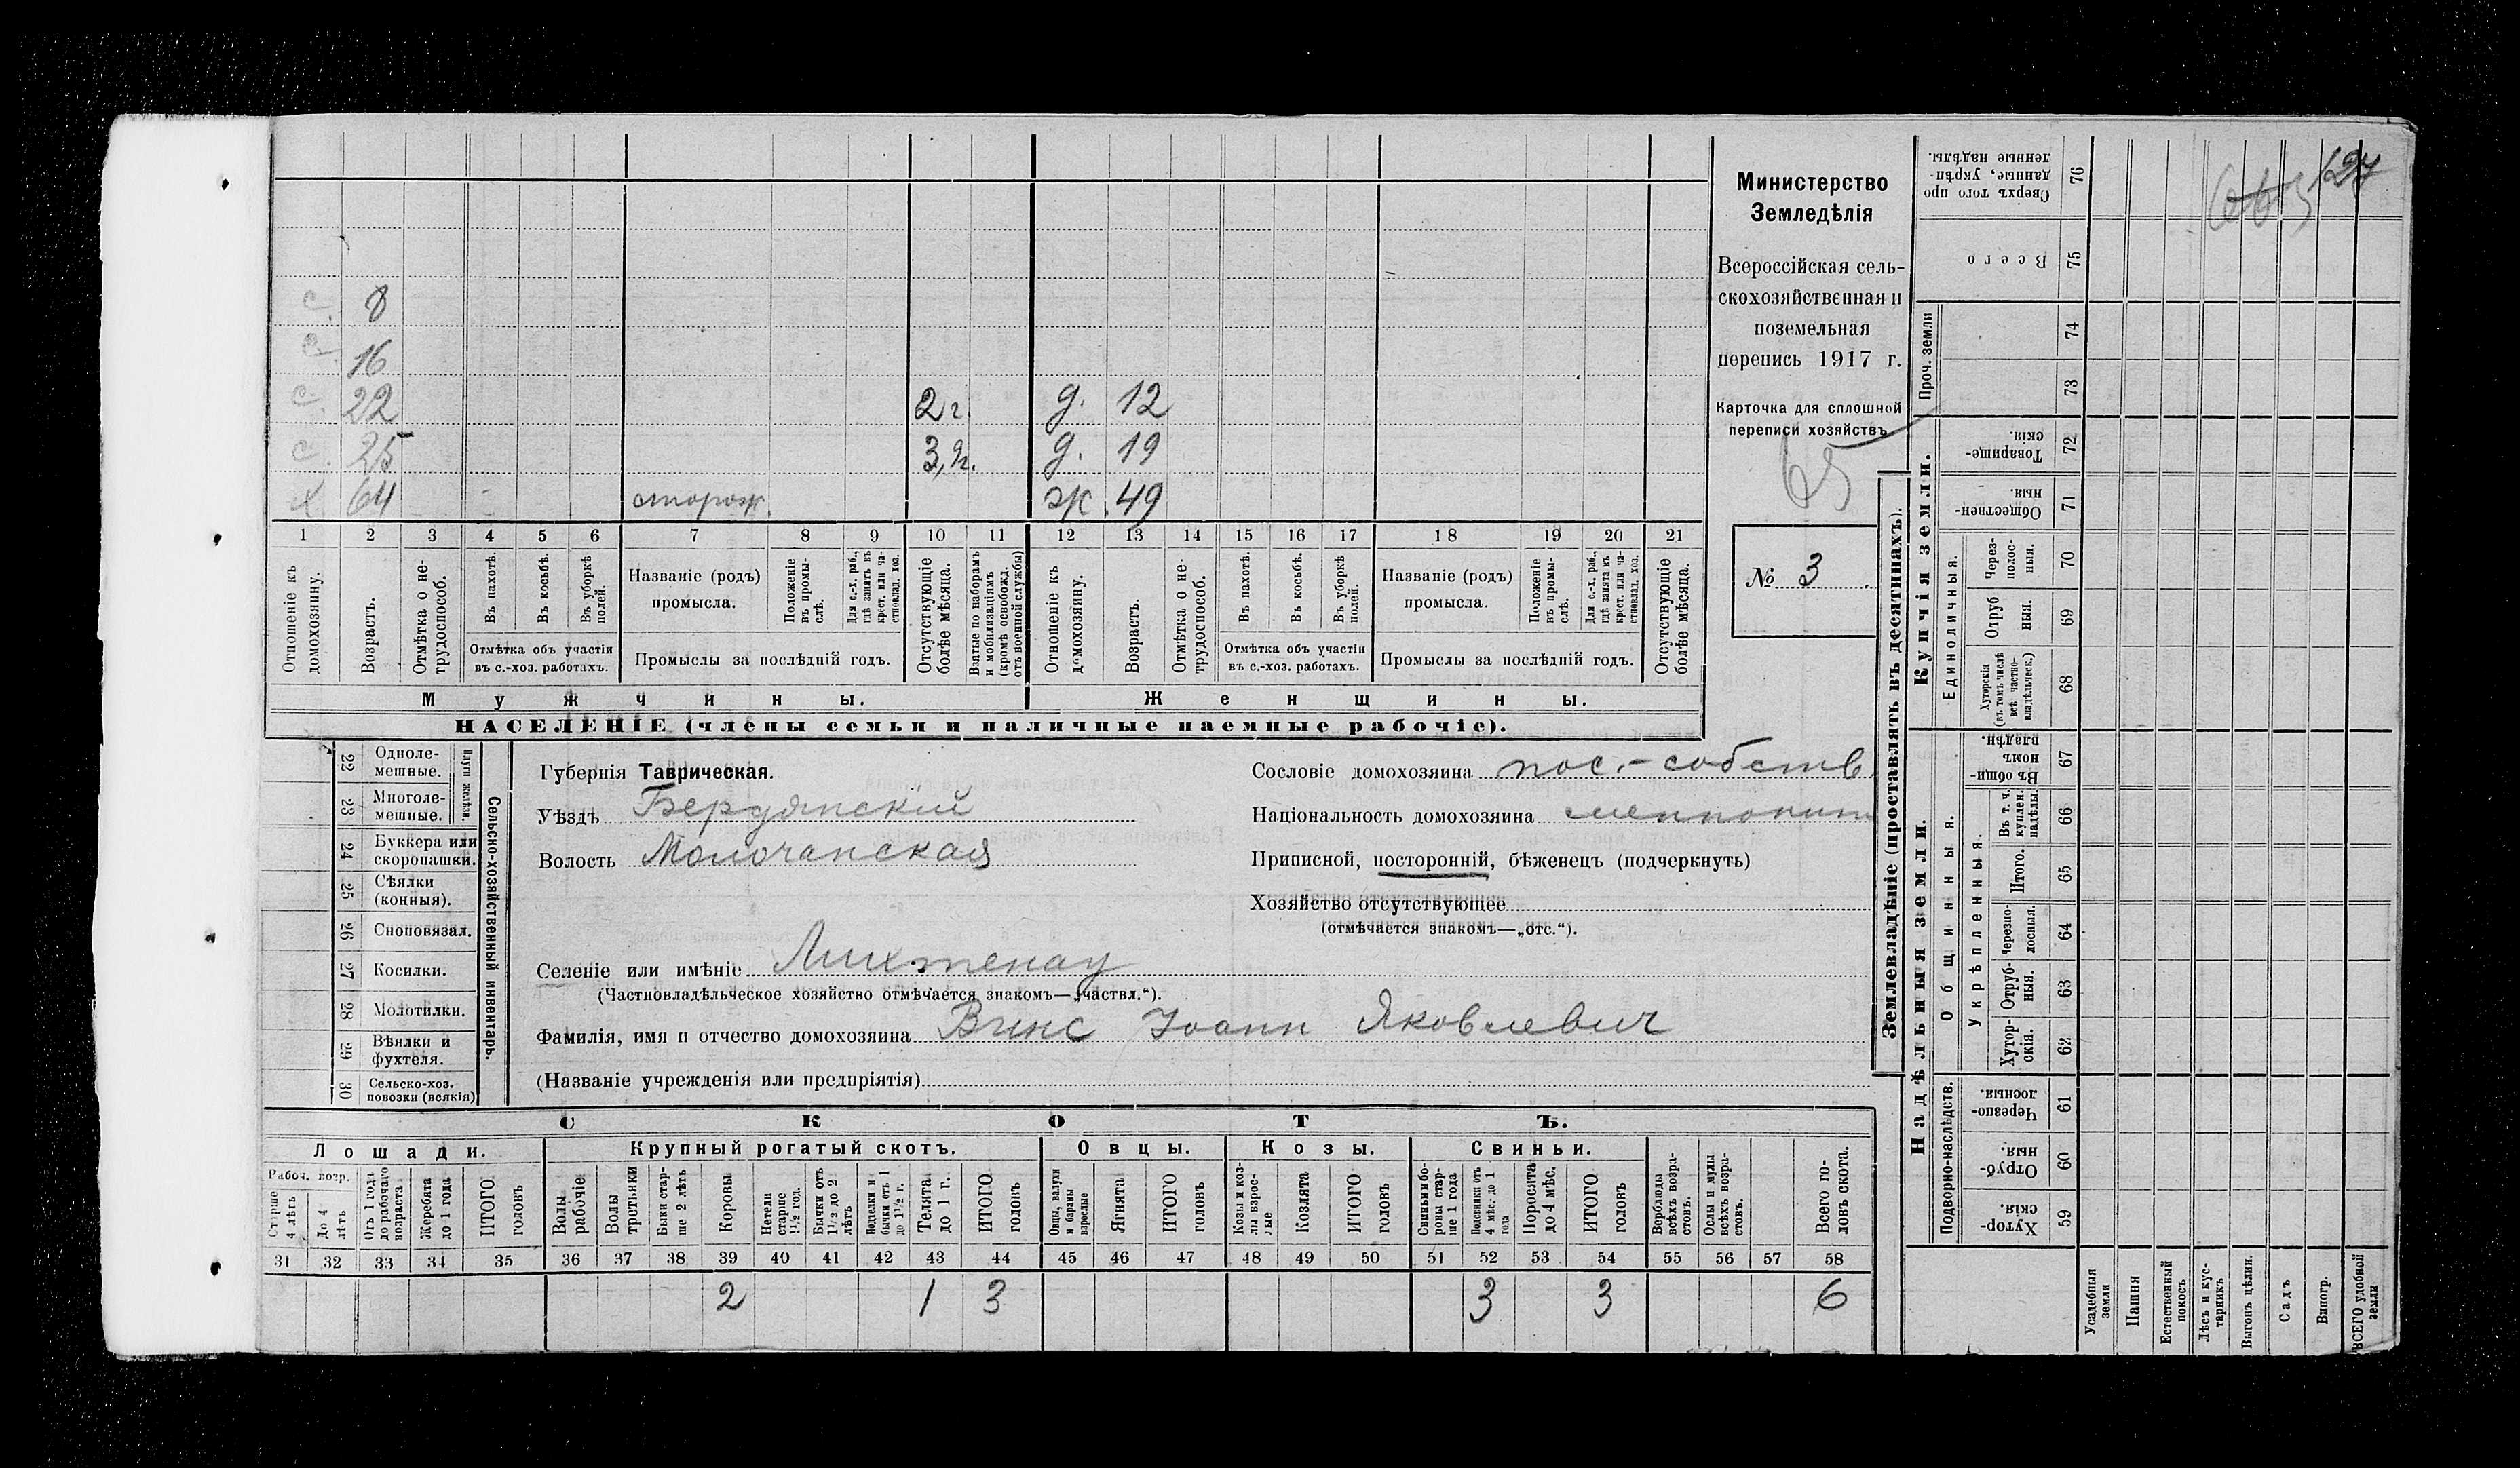 Министерство
Земледѣлія
Всероссійская сель-
скохозяйственная и
поземельная
перепись 1917 г.
Карточка для сплошной
переписи хозяйствъ
65
№ 3
127
с. 8
с. 16
с. 22 2 г. д. 12
с. 25 3 г. д. 19
х 64 сторож. ж. 49
1 2 3 4 5 6 7 8 9 10 11 12 13 14 15 16 17 18 19 20 21
Отношеніе къ домохозяину.
Возрастъ.
Отмѣтка о не-трудоспособ.
Въ пахотѣ.
Въ косьбѣ.
Въ уборкѣ полей.
Отмѣтка объ участіи въ с.-хоз. работахъ.
Названіе (родъ) промысла.
Положеніе въ промы-слѣ.
Для с.-х. раб., гдѣ занятъ въ крест. или ча-стновлад. хоз.
Промыслы за послѣдній годъ.
Отсутствующіе болѣе мѣсяца.
Взятые по наборамъ и мобилизаціямъ (кромѣ освобожд. отъ военной службы)
Отношеніе къ домохозяину.
Возрастъ.
Отмѣтка о не-трудоспособ.
Въ пахотѣ.
Въ косьбѣ.
Въ уборкѣ полей.
Отмѣтка объ участіи въ с.-хоз. работахъ.
Названіе (родъ) промысла.
Положеніе въ промы-слѣ.
Для с.-х. раб., гдѣ занята въ крест. или ча-стновлад. хоз.
Промыслы за послѣдній годъ.
Отсутствующіе болѣе мѣсяца.
Мужчины. Женщины.
НАСЕЛЕНІЕ (члены семьи и наличные наемные рабочіе).
Сельско-хозяйственный инвентарь.
Плуги желѣзн.
22 Одноле-мешные.
23 Многоле-мешные.
24 Буккера или скоропашки.
25 Сѣялки (конныя).
26 Сноповязал.
27 Косилки.
28 Молотилки.
29 Вѣялки и фухтеля.
30 Сельско-хоз. повозки (всякія)
Губернія Таврическая.
Уѣздъ Бердянскій
Волость Молочанская
Сословіе домохозяина пос.-собств
Національность домохозяина меннонит
Приписной, посторонній, бѣженецъ (подчеркнуть)
Хозяйство отсутствующее
(отмѣчается знакомъ—„отс.“).
Селеніе или имѣніе Лихтенау
(Частновладѣльческое хозяйство отмѣчается знакомъ—„частвл.“).
Фамилія, имя и отчество домохозяина Винс Іоанн Яковлевич
(Названіе учрежденія или предпріятія)
СКОТЪ.
Лошади. Крупный рогатый скотъ. Овцы. Козы. Свиньи.
Рабоч. возр.
Старше 4 лѣтъ
До 4 лѣтъ
Отъ 1 года до рабочаго возраста
Жеребята до 1 года
ИТОГО головъ
Волы рабочіе
Волы третьяки
Быки стар-ше 2 лѣтъ
Коровы
Нетели старше 1½ год.
Бычки отъ 1½ до 2 лѣтъ
Подтелки и бычки отъ 1 до 1½ г.
Телята до 1 г.
ИТОГО головъ
Овцы, валухи и бараны взрослые
Ягнята
ИТОГО головъ
Козы и коз-лы взрос-лые
Козлята
ИТОГО головъ
Свиньи и бо-ровы стар-ше 1 года
Подсвинки отъ 4 мѣс. до 1 года
Поросята до 4 мѣс.
ИТОГО головъ
Верблюды всѣхъ возра-стовъ.
Ослы и мулы всѣхъ возра-стовъ.
Всего го-ловъ скота.
31 32 33 34 35 36 37 38 39 40 41 42 43 44 45 46 47 48 49 50 51 52 53 54 55 56 57 58
2 1 3 3 3 6
Землевладѣніе (проставлять въ десятинахъ).
Сверхъ того про данные, укрѣп-ленные надѣлы. 76
Всего 75
Проч. земли
74
73
Купчія земли.
Товарище-скія. 72
Обществен-ныя. 71
Единоличныя.
Через-полос-ныя. 70
Отруб ныя. 69
Хуторскія (въ томъ числѣ всѣ частно-владѣльческ.) 68
Надѣльныя земли.
Общинныя.
Въ общи-номъ владѣн. 67
Укрѣпленныя.
Въ т. ч. куплен. надѣлы. 66
Итого. 65
Черезпо-лосныя. 64
Отруб-ныя. 63
Хутор-скія. 62
Подворно-наслѣдств.
Черезпо-лосныя. 61
Отруб-ныя. 60
Хутор-скія. 59
Усадебныя земли
Пашня
Естественный покосъ
Лѣсъ и кус-тарникъ
Выгонъ цѣлин.
Садъ
Виногр.
ВСЕГО удобной земли